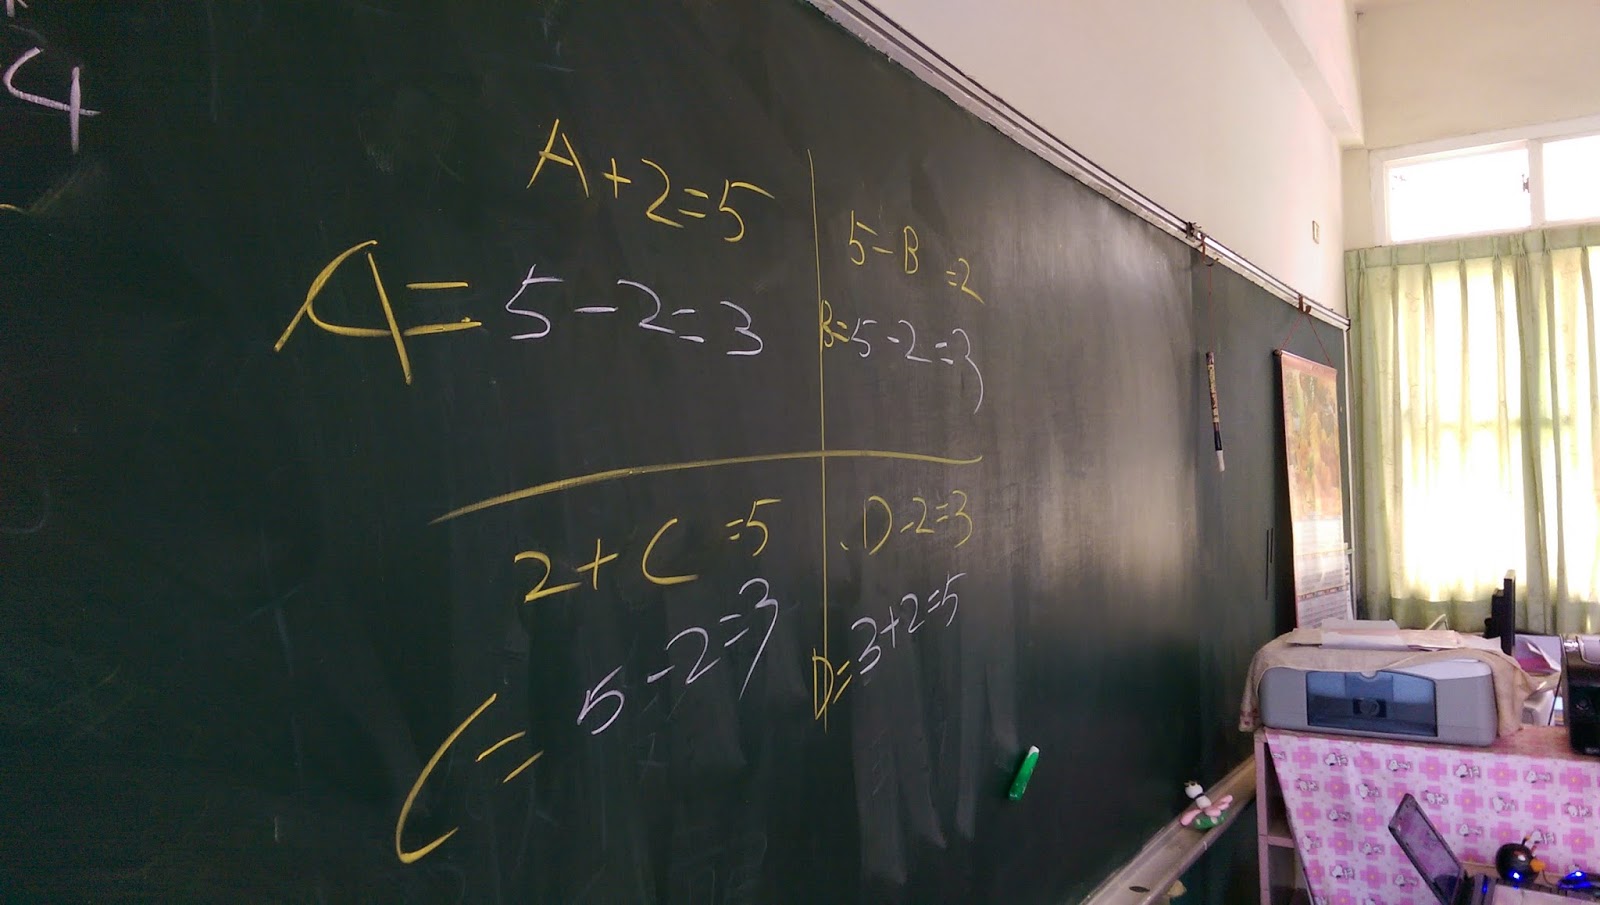 4
A+2=5
A=5-2=3
5-B=2
B=5-2=3
2+C=5
C=5-2=3
D-2=3
D=3+2=5